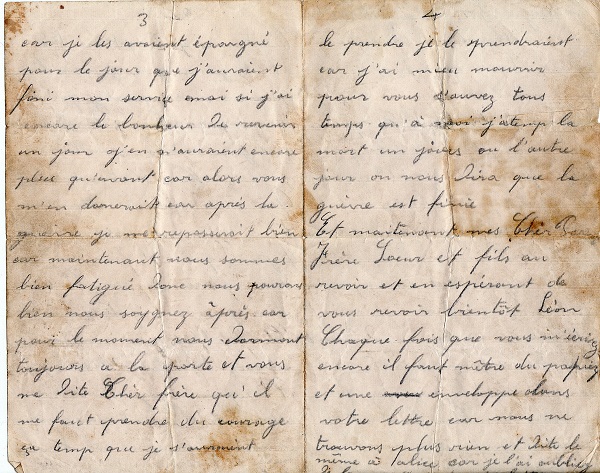 3
car ji les avoient épargné
pour le jour que j'auraient
fini mon service mai si j'ai
encore le bonheur de revenir
un jour j'en n'auraient encore
plus qu'avant car alors vous
m'en donerait car après la
guerre je me repasserait bien
car maintenant nous sommes
bien fatigué donc nous pourons
bien nous soygnez àprès car
pour le moment nous dormont
toujours a la porte et vous
me dite Chèr frère qu'il
me faut prendre du courage
ça temp que je s'auraient
4
le prendre je le prendraient
car j'ai mieu mourrir
pour vous sauvez tous
temps qu'à moi j'atemp la
mort un jours ou l'autre
jour on nous dira que la
guerre est finie
Et maintenant mes Chèr
Frère Soeur et fils au
revoir et en espérant de
vous revoir bientôt Léon
Chaque fois que vous m'écrivez
encore il faut mêtre du papiez
et une enveloppe dans
votre lettre car nous ne
trouvons plus rien et dite le
même à car je l'ai oubliez